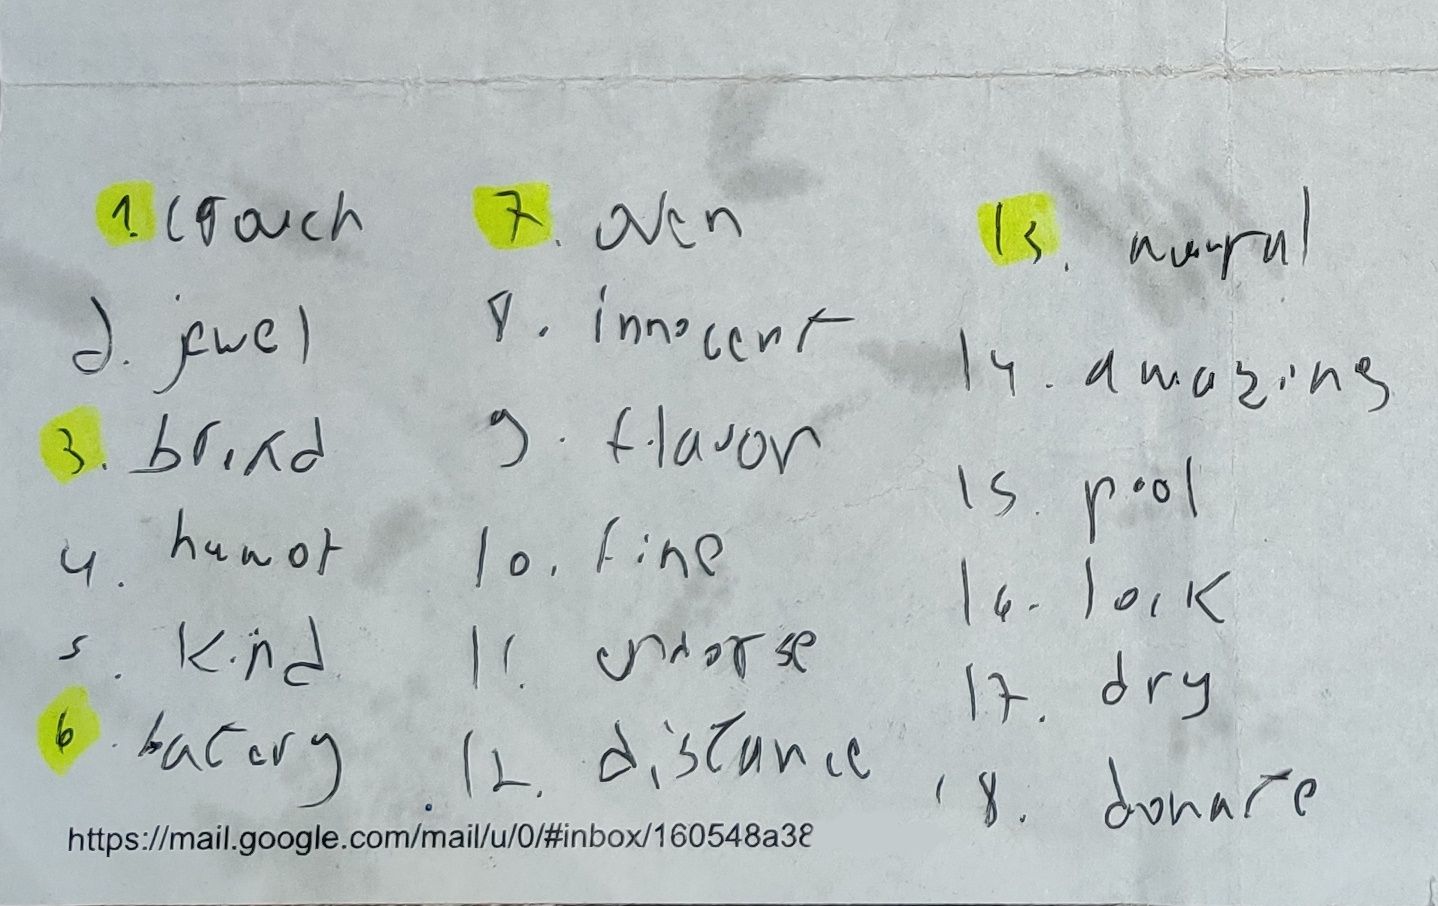 1. crouch
2. jewel
3. brind
4. humor
5. kind
6. batery
7. oven
8. innocent
9. flavor
10. fine
11. endorse
12. distance
13.
14. amazing
15. pool
16. lock
17. dry
18. donate
https://mail.google.com/mail/u/0/#inbox/160548a38